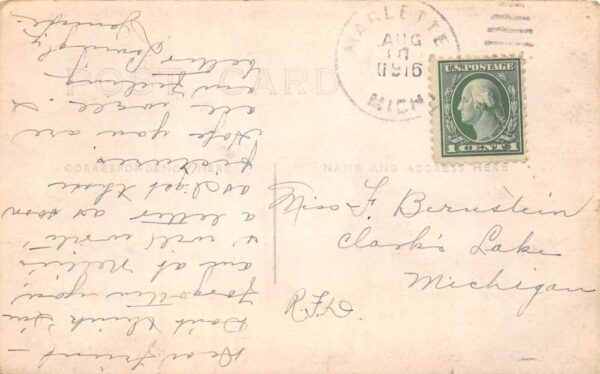 POST CARD
CORRESPONDENCE HERE
NAME AND ADDRESS HERE
MARLETTE
AUG
1916
MICH
U.S. POSTAGE
1 CENT 1
Miss F. Bernstein
Clark's Lake
Michigan
R.F.D.
Dear Friend –
Don't think I'm
forgotten you,
and at Nellie's
I will write
a letter as soon
as I get those
pictures
Hope you are
all well. I
am feeling
better